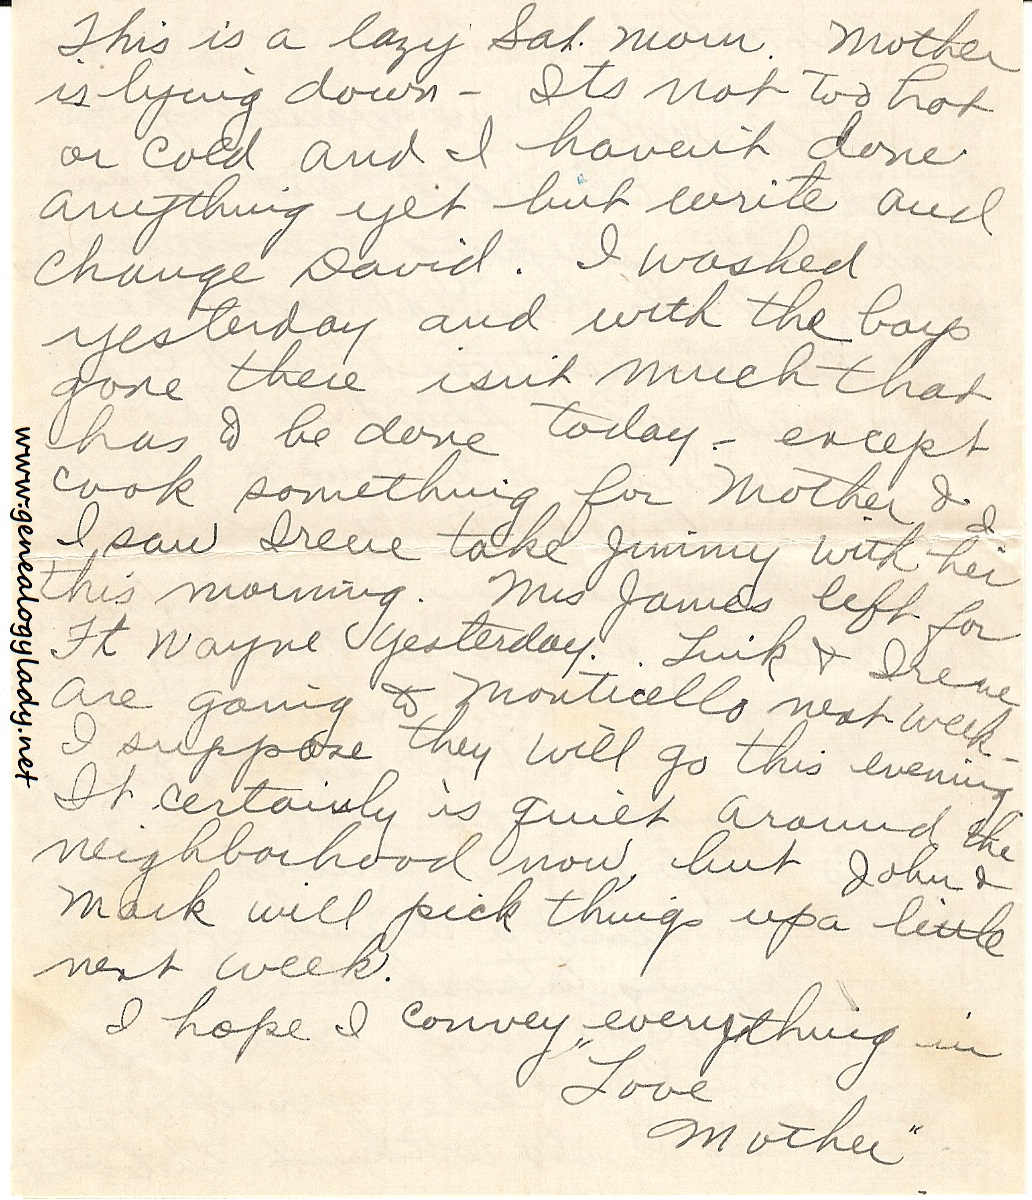 This is a lazy Sat. morn. Mother
is lying down – Its not too hot
or cold and I haven't done
anything yet but write and
change David. I washed
yesterday and with the boys
gone there isn't much that
has to be done today – except
cook something for Mother & I
I saw Irene take Jimmy with her
this morning. Mrs James left for
Ft Wayne yesterday. Luik & Irene
are going to Monticello next week –
I suppose they will go this evening
It certainly is quiet around the
neighborhood now, but John &
Mark will pick things up a little
next week.
I hope I convey everything in
"Love
Mother"
www.genealogylady.net